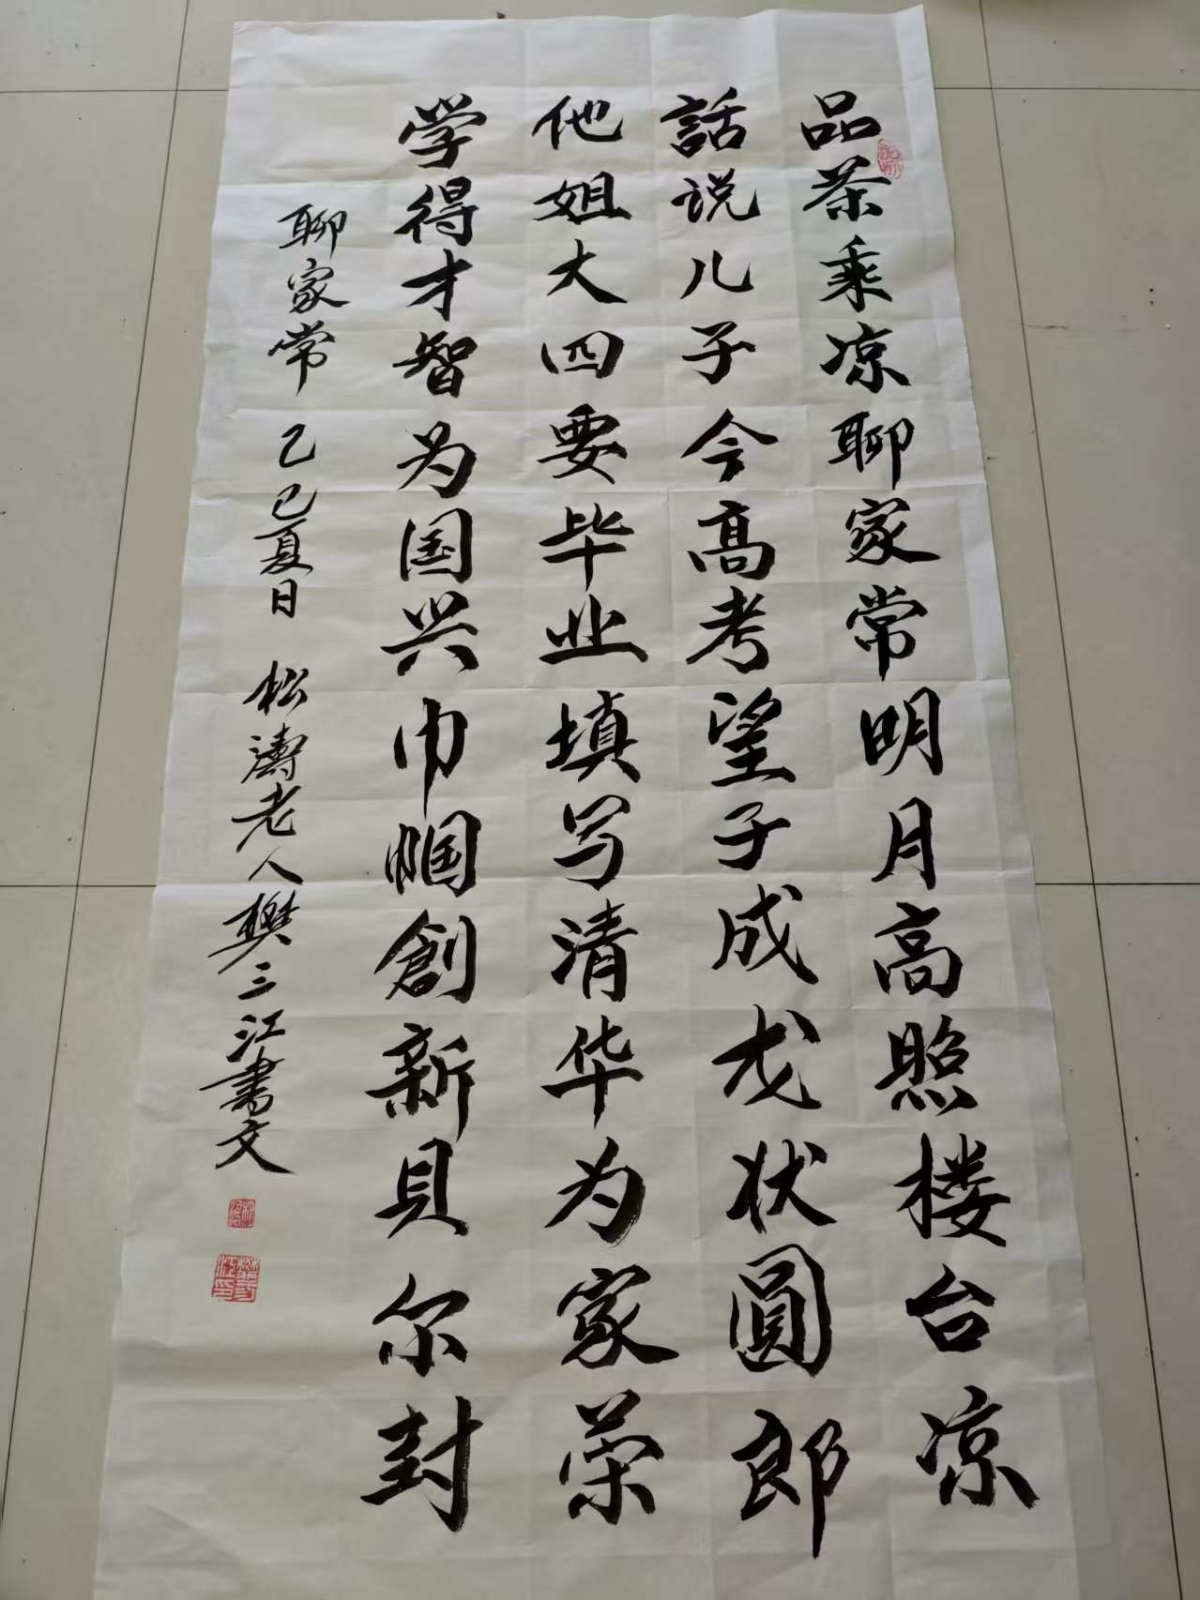 品茶乘凉聊家常明月高照楼台凉
話说儿子今高考望子成龙状圓郎
他姐大四要毕业填写清华为家荣
学得才智为国兴巾帼創新貝尔封
聊家常 乙巳夏日 松涛老人樊三江書文